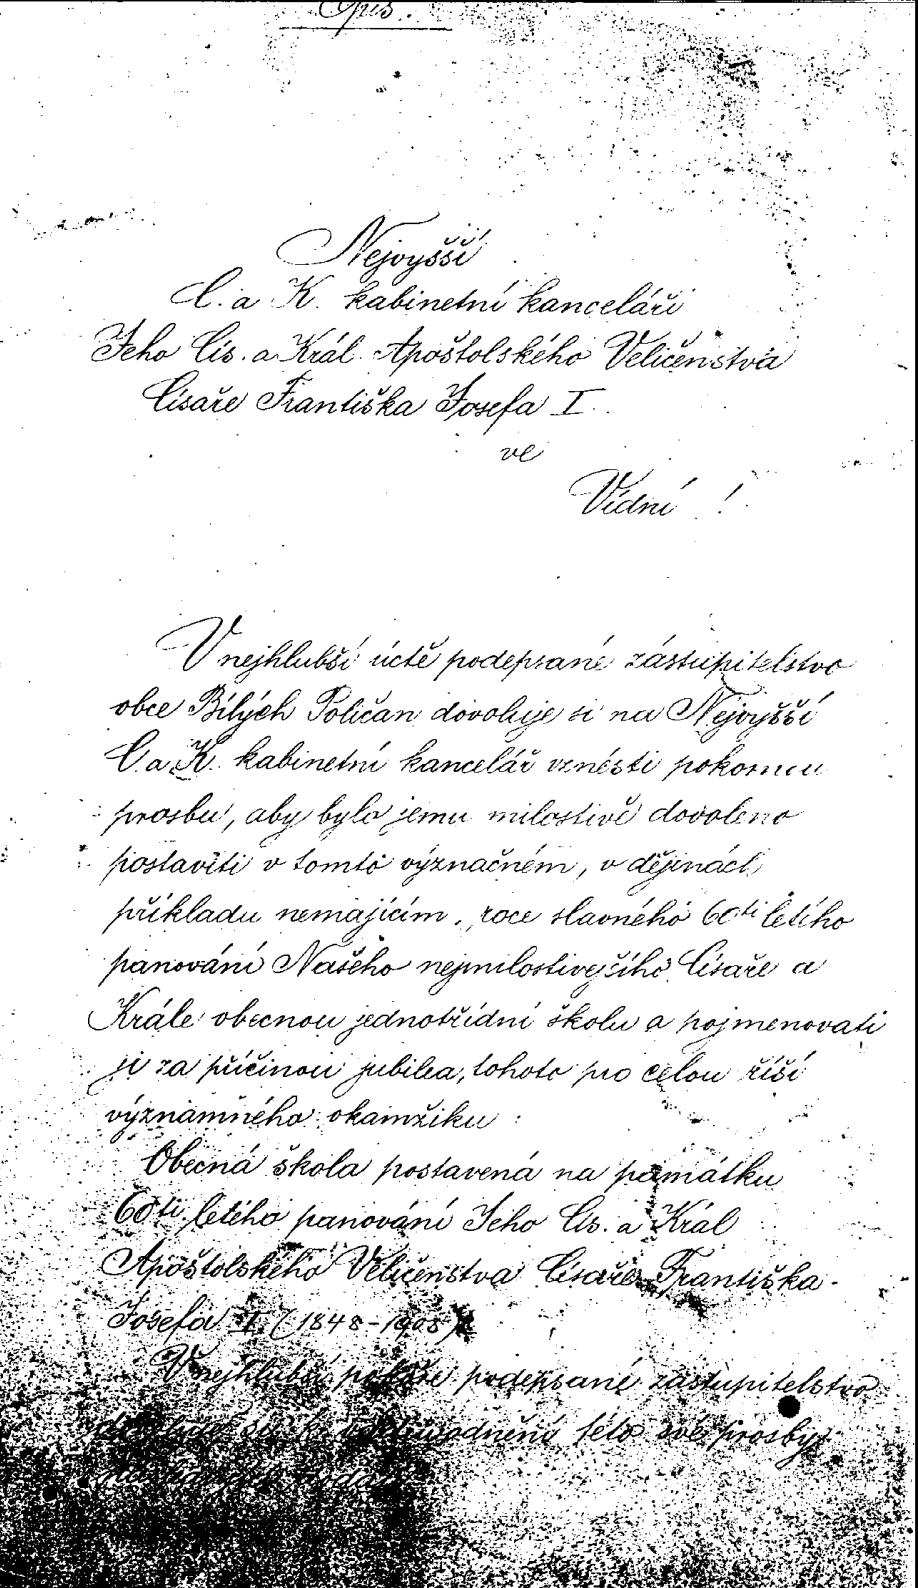 Opis.
Nejvyšší
C. a K. kabinetní kanceláři
Jeho Cís. a Král. Apoštolského Veličenstva
Císaře Františka Josefa I.
ve
Vídni !
V nejhlubší úctě podepsané zástupitelstvo
obce Bílých Poličan dovoluje si na Nejvyšší
C. a K. kabinetní kancelář vznésti pokornou
prosbu, aby bylo jemu milostivě dovoleno
postaviti v tomto význačném, v dějinách
příkladu nemajícím, roce slavného 60ti letého
panování Našeho nejmilostivejšího Císaře a
Krále obecnou jednotřídní školu a pojmenovati
ji za příčinou jubilea, tohoto pro celou říši
významného okamžiku :
Obecná škola postavená na památku
60ti letého panování Jeho Cís. a Král
Apoštolského Veličenstva Císaře Františka
Josefa I. (1848-1908)
V nejhlubší pokoře podepsané zástupitelstvo
si k této své prosby